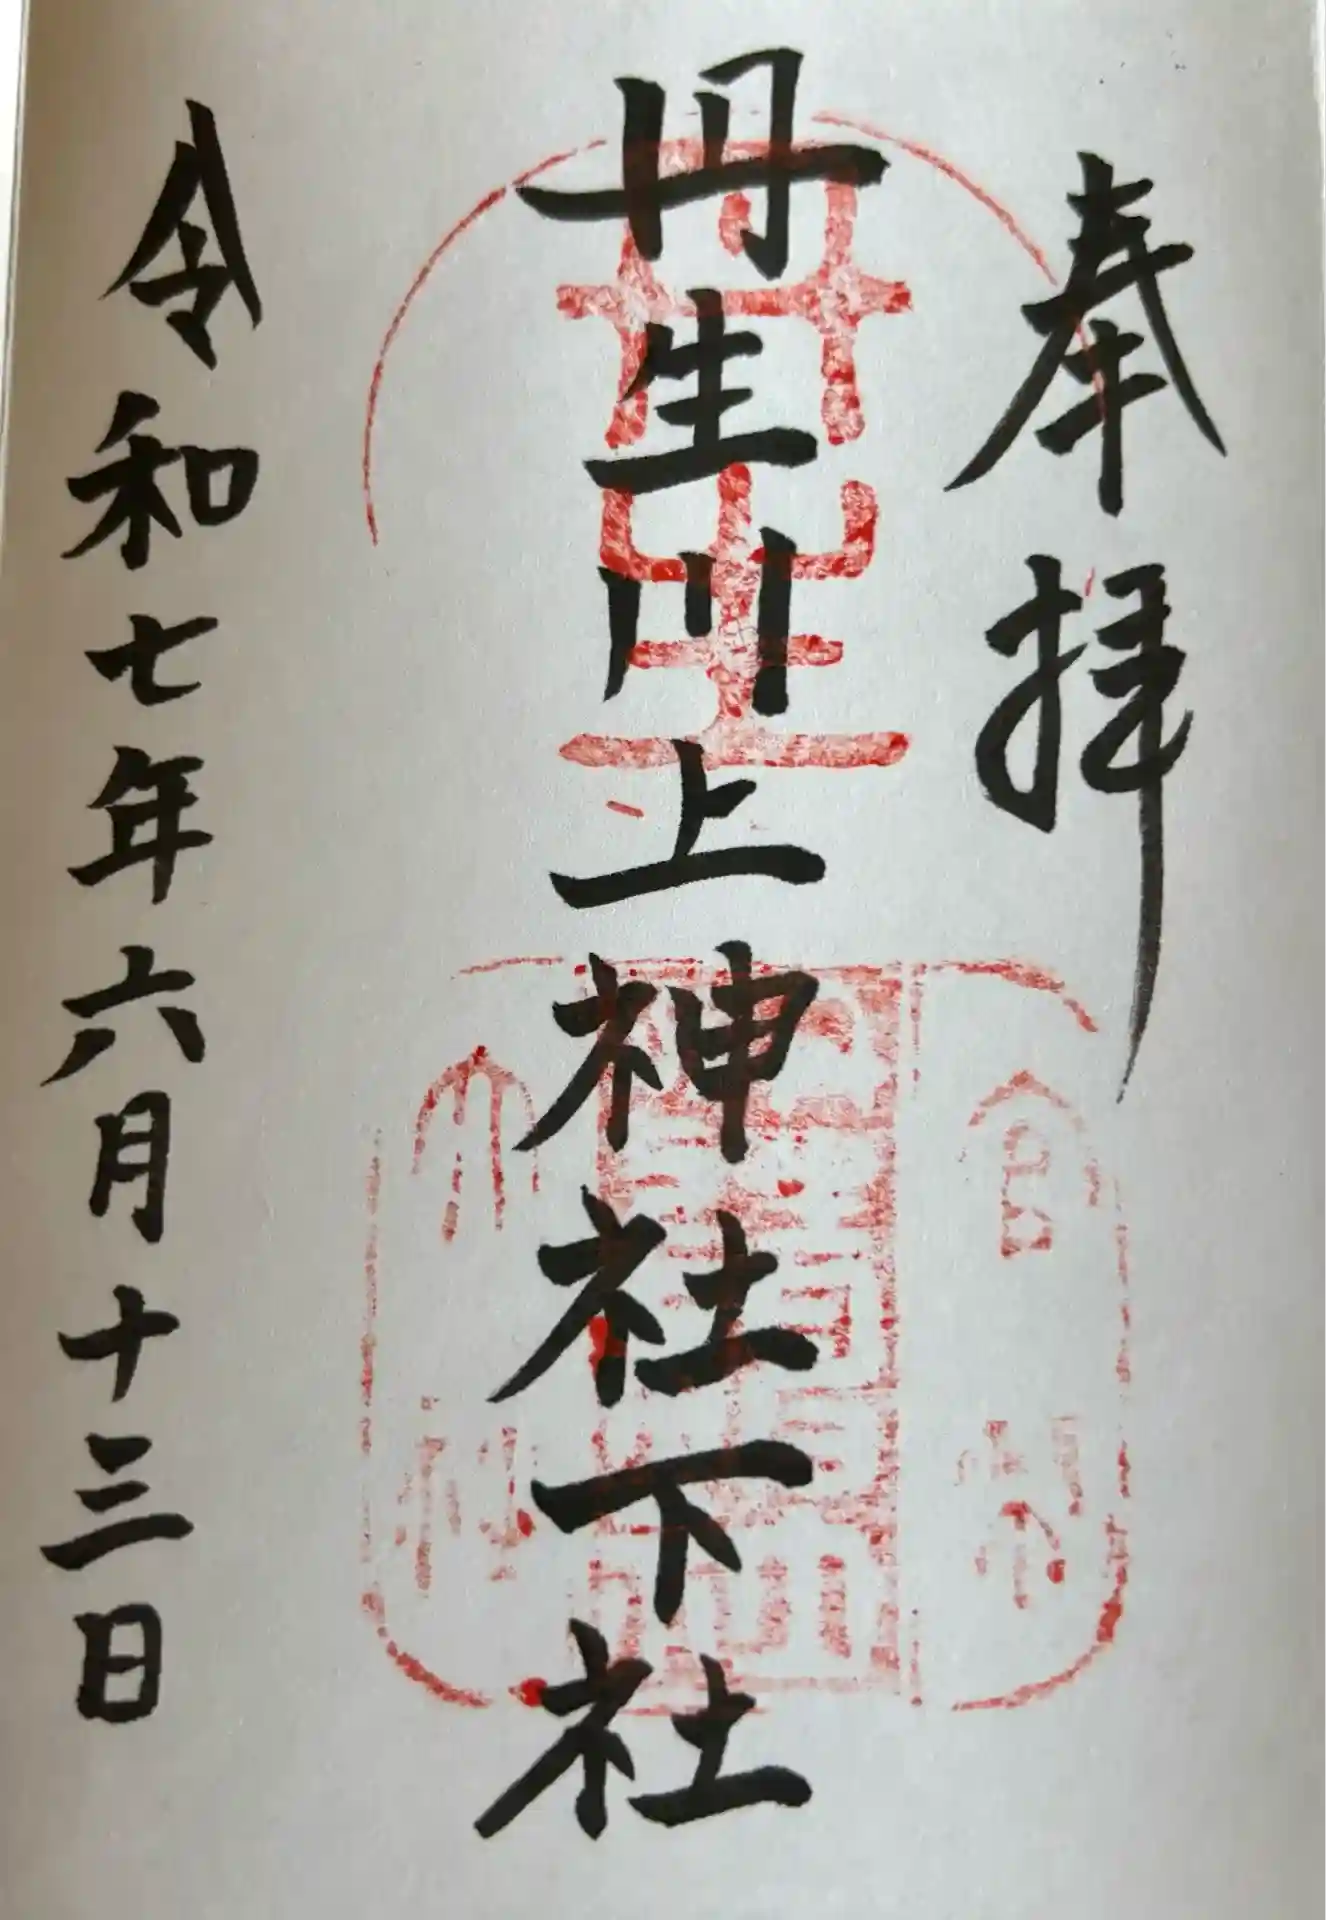 奉拝
丹生川上神社下社
令和七年六月十三日
丹生